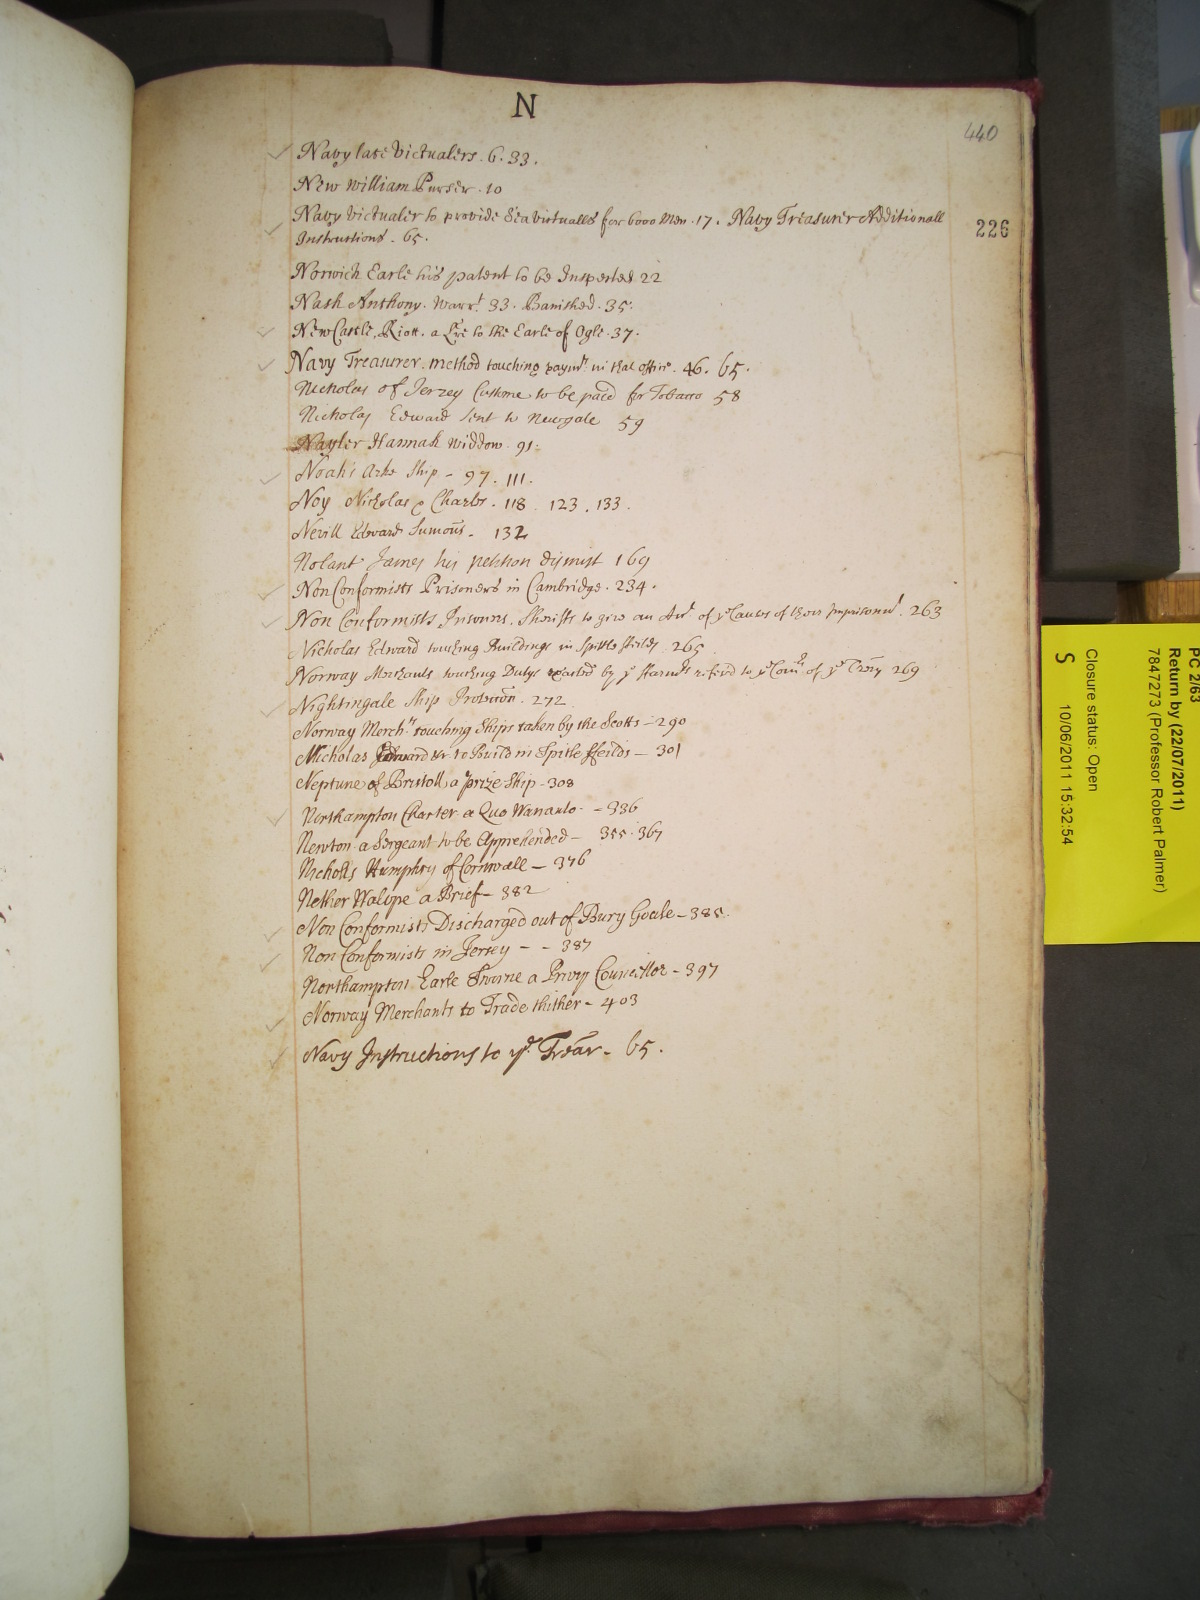 N
440
Navy late Victualers . 6 . 33 .
New William Purser . 10
Navy Victualer to provide Sea victualls for 6000 Men . 17 . Navy Treasurer Additionall
226
Instructions . 65 .
Norwich Earle his patent to be Inspected 22
Nash Anthony . Warrt 33 . Banished . 35 .
New Castle, Riott . a Lre to the Earle of Ogle . 37 .
Navy Treasurer . method touching paymt in that office . 46 . 65 .
Nicholas of Jerzey Custome to be paid for Tobacco 58
Nicholas Edward sent to Newgate 59
Nayler Hannah widdow . 91 .
Noahs Arke Ship - 97 . 111 .
Noy Nicholas & Charles . 118 . 123 . 133 .
Nevill Edward Sumons . 132
Nolant James his petition dismist 169
Non Conformists Prisoners in Cambridge . 234 .
Non Conformists Prisoners . Sheriffs to give an Act of ye Causes of their Imprisonmt . 263
Nicholas Edward touching Buildings in Spittle fields . 265
Norway Merchants touching Dutys exacted by ye refered to ye Comrs of ye Treary 269
Nightingale Ship . 272
Norway Mercht touching Ships taken by the Scotts - 290
Nicholas Edward &c to Build in Spittle ffeilds - 301
Neptune of Bristoll a prize Ship - 308
Northampton Charter a Quo Warranto - 336
Newton a Sergeant to be Apprehended - 355 . 367
Nicholls Humphry of Cornwall - 376
Nether Walope a Brief - 382
Non Conformists Discharged out of Bury Goale - 385 .
Non Conformists in Jersey - - 387
Northampton Earle Sworne a Privy Councillor - 397
Norway Merchants to Trade thither - 403
Navy Instructions to ye Trear - 65 .
PC 2/63
Return by (22/07/2011)
7847273 (Professor Robert Palmer)
Closure status: Open
S 10/06/2011 15:32:54